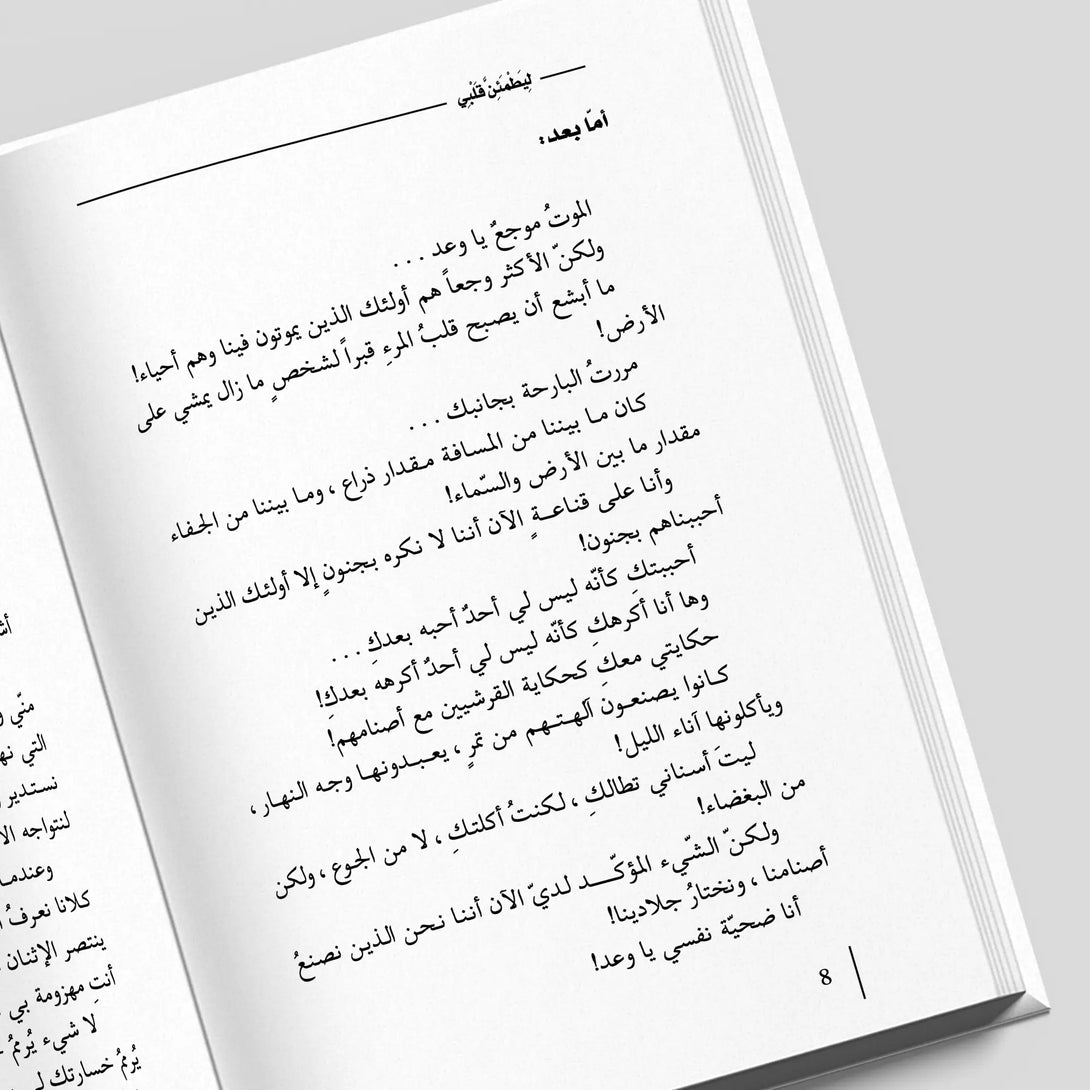 لِيَطْمَئِنَّ قَلْبِي
أمّا بعد:
الموتُ موجعٌ يا وعد ...
ولكنّ الأكثر وجعاً هم أولئك الذين يموتون فينا وهم أحياء!
ما أبشع أن يصبح قلبُ المرءِ قبراً لشخصٍ ما زال يمشي على
الأرض!
مررتُ البارحة بجانبك ...
كان ما بيننا من المسافة مقدار ذراع، وما بيننا من الجفاء
مقدار ما بين الأرض والسّماء!
وأنا على قناعةٍ الآن أننا لا نكره بجنونٍ إلا أولئك الذين
أحببناهم بجنون!
أحببتكِ كأنّه ليس لي أحدٌ أحبه بعدكِ ...
وها أنا أكرهكِ كأنّه ليس لي أحدٌ أكرهه بعدكِ!
حكايتي معكِ كحكاية القرشيين مع أصنامهم!
كانوا يصنعون آلهتهم من تمرٍ، يعبدونها وجه النهار،
ويأكلونها آناء الليل!
ليتَ أسناني تطالكِ، لكنتُ أكلتكِ، لا من الجوع، ولكن
من البغضاء!
ولكنّ الشّيء المؤكّد لديّ الآن أننا نحن الذين نصنعُ
أصنامنا، ونختارُ جلادينا!
أنا ضحيّة نفسي يا وعد!
8
منّي و
التي نه
نستدير
لنتواجه الأ
وعندما
كلانا نعرفُ
ينتصر الإثنان
أنتِ مهزومة بي
لا شيء يُرممُ
يُرممُ خسارتك لـ